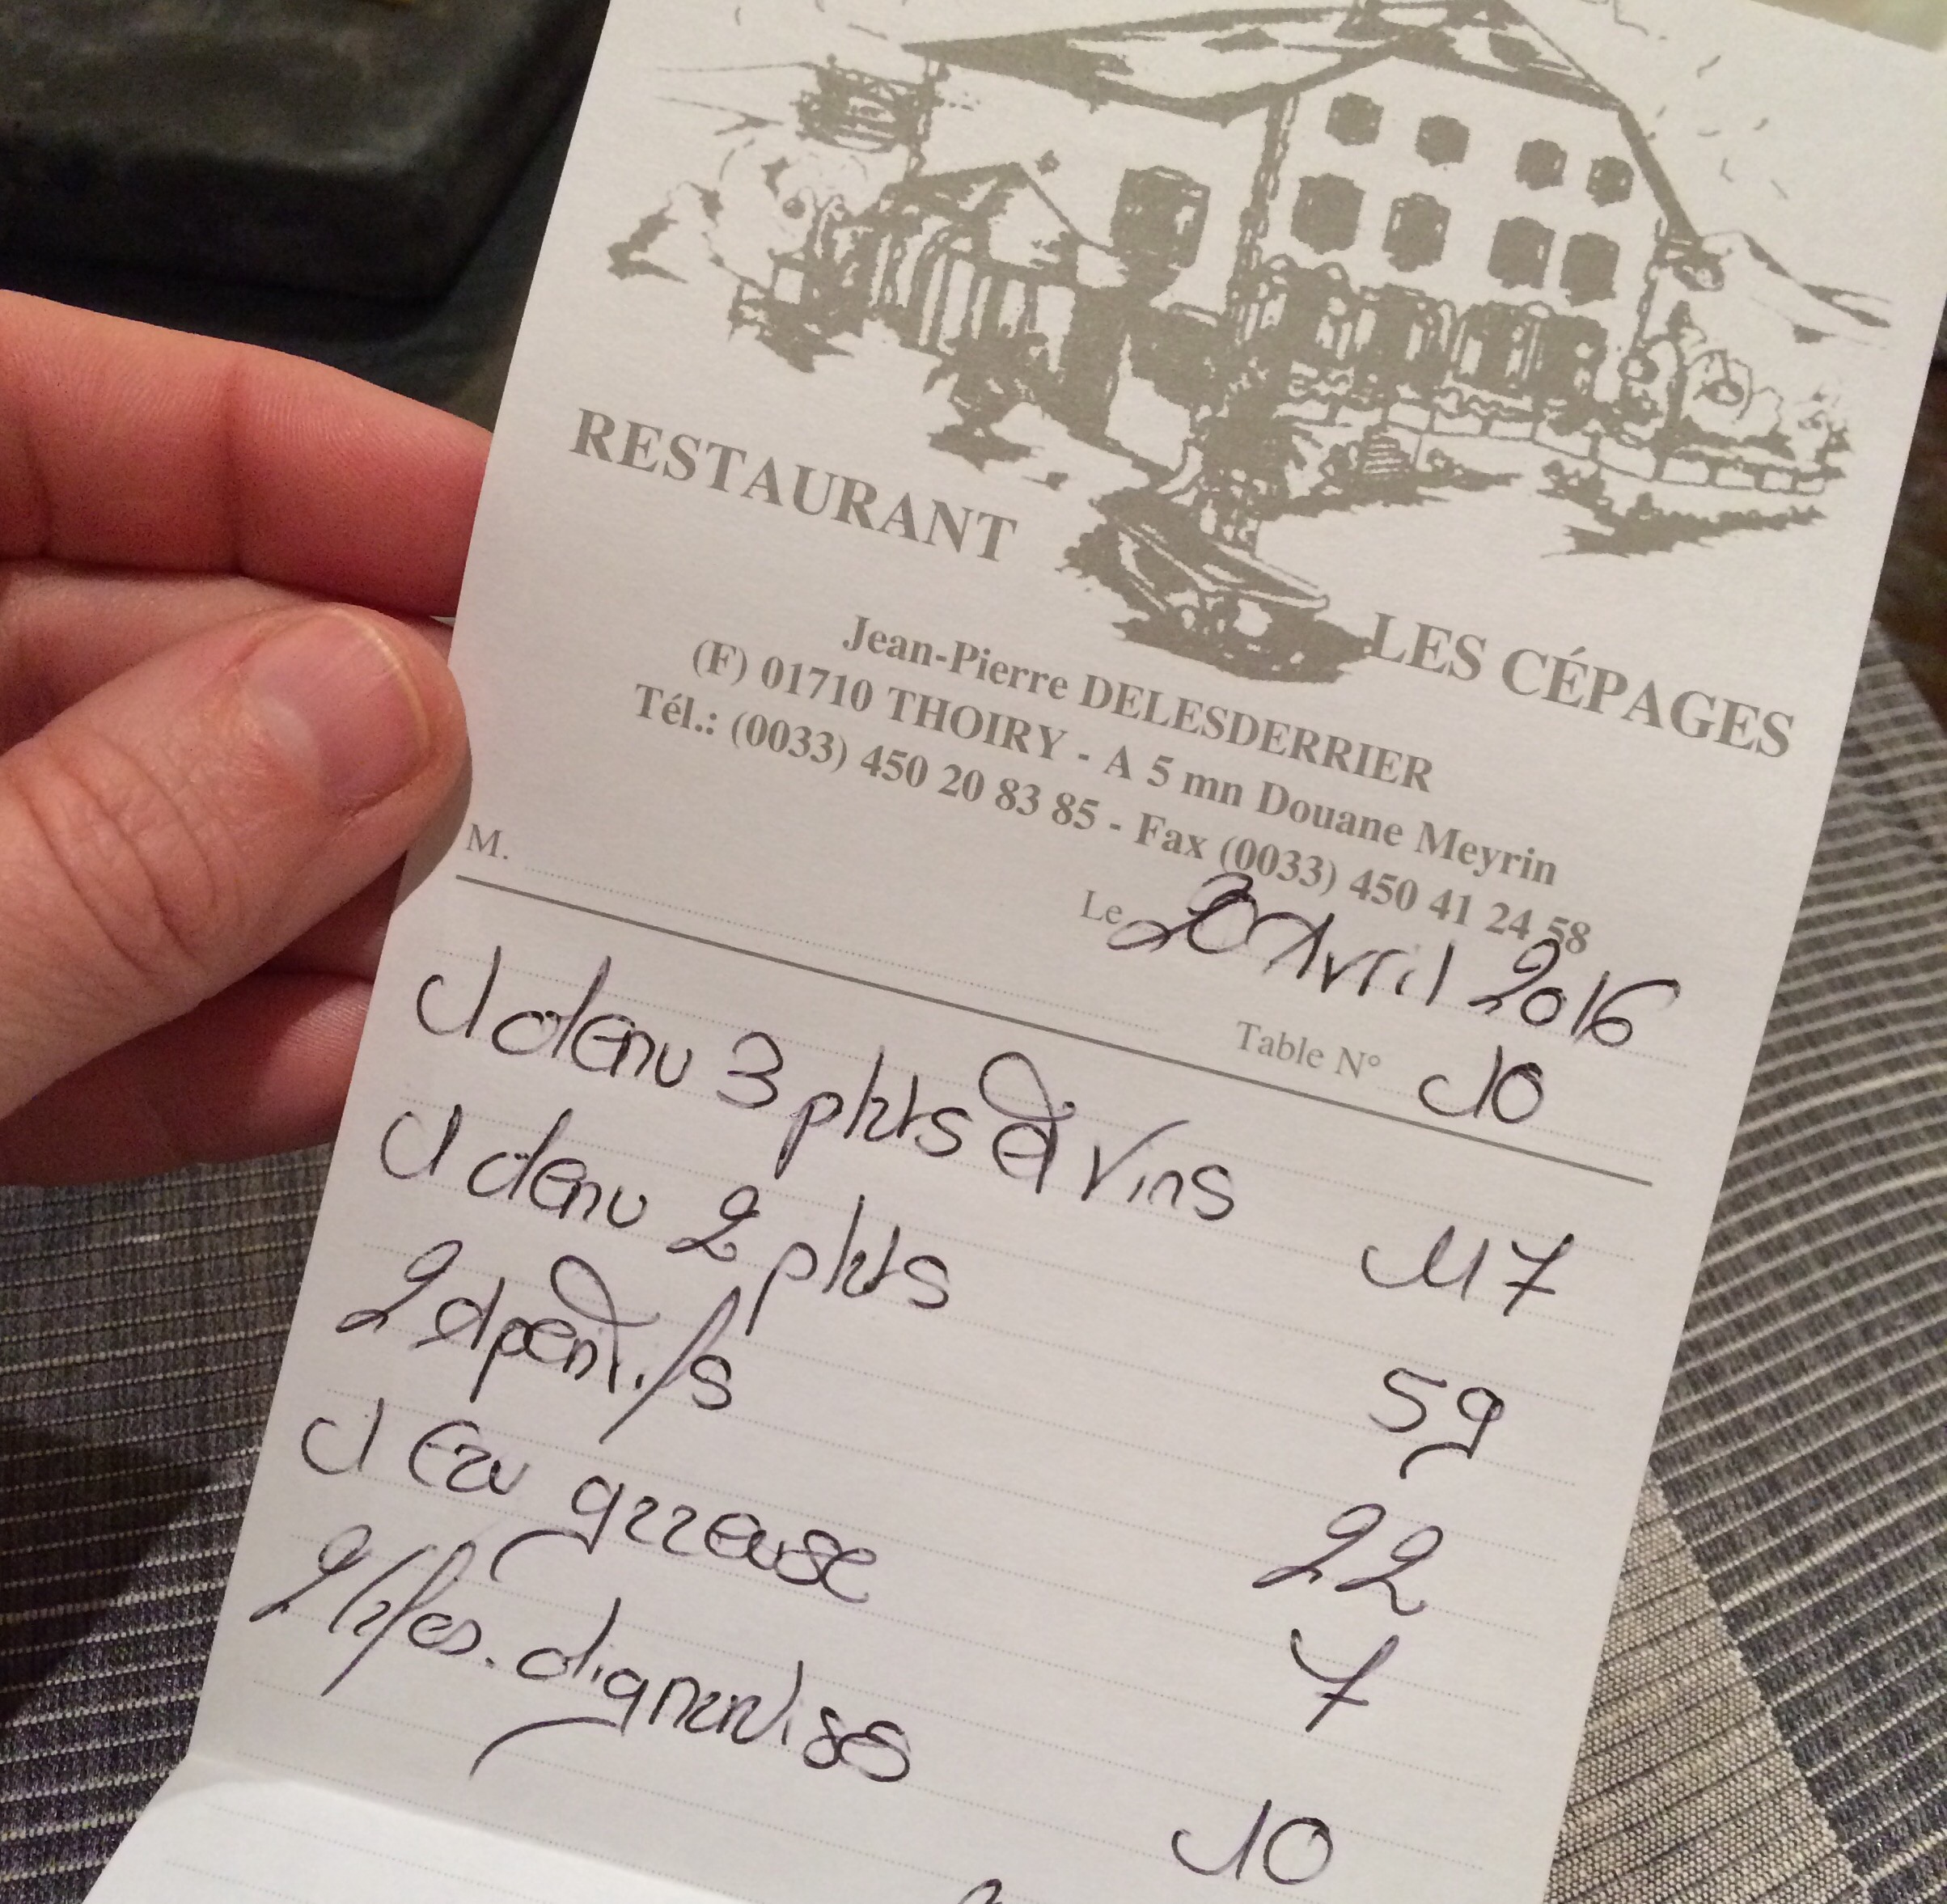 RESTAURANT
LES CÉPAGES
Jean-Pierre DELESDERRIER
(F) 01710 THOIRY - A 5 mn Douane Meyrin
Tél.: (0033) 450 20 83 85 - Fax (0033) 450 41 24 58
M.
Le 20 Avril 2016
Table N° 10
1 Menu 3 plats et Vins 117
1 Menu 2 plats 59
2 Aperitifs 22
1 Eau gazeuse 7
2 Cafes. Mignardises 10